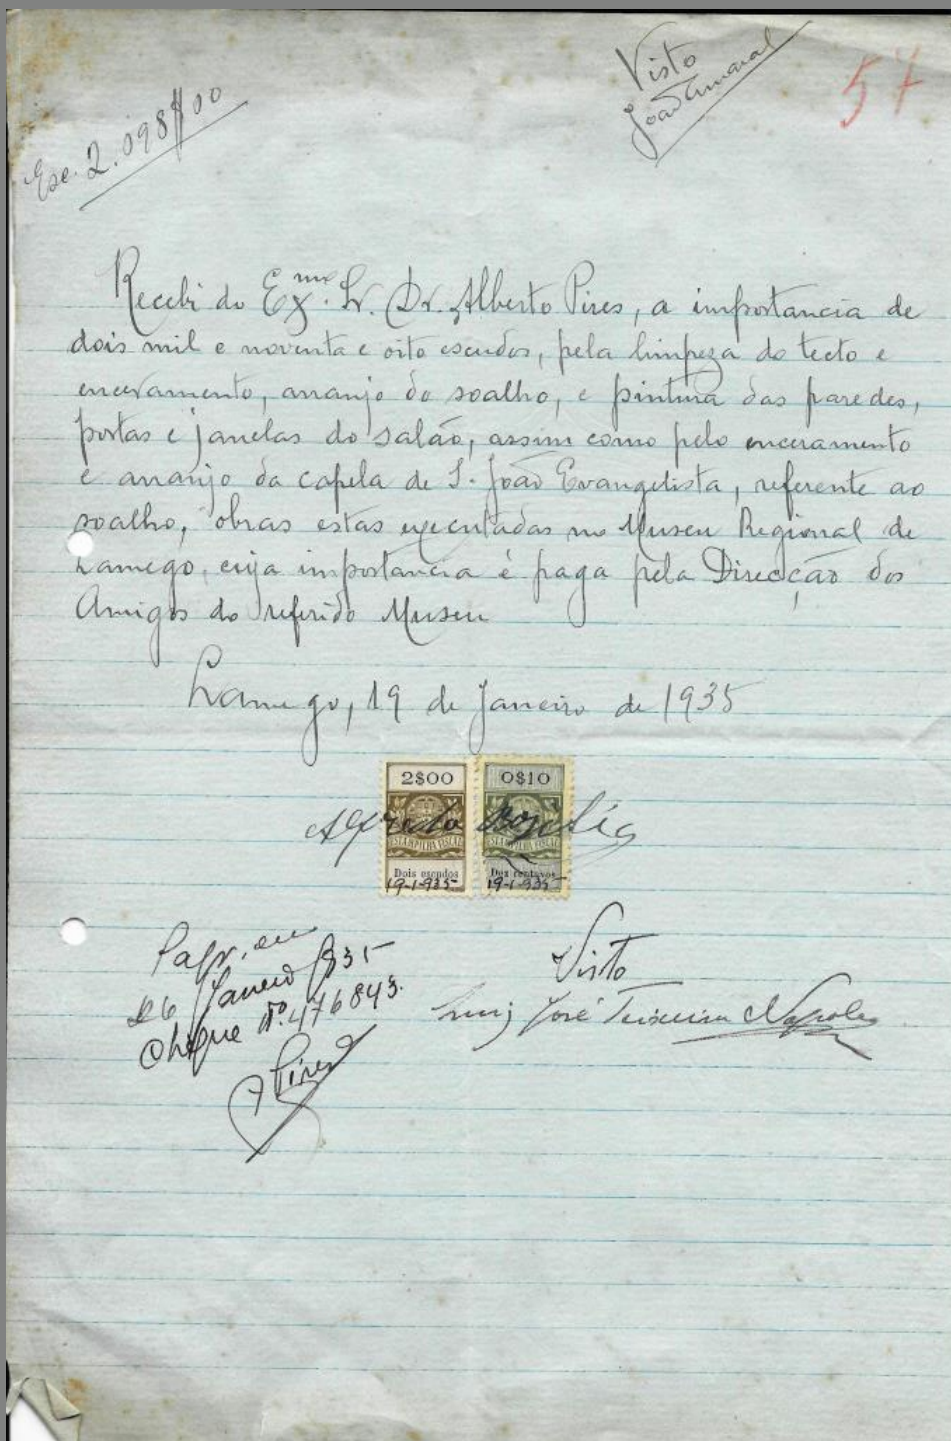 Visto
João Amaral
57
Esc. 2.098$00
Recebi do Ex.mo Sr. Dr. Alberto Pires, a importancia de
dois mil e noventa e oito escudos, pela limpeza do tecto e
enceramento, arranjo do soalho, e pintura das paredes,
portas e janelas do salão, assim como pelo enceramento
e arranjo da capela de S. João Evangelista, referente ao
soalho, obras estas executadas no Museu Regional de
Lamego, cuja importancia é paga pela Direcção dos
Amigos do referido Museu
Lamego, 19 de Janeiro de 1935
2$00 0$10
ESTAMPILHA FISCAL ESTAMPILHA FISCAL
Alfredo
Dois escudos Dez centavos
19-1-935 19-1-935
em
26 Janeiro 935
Cheque Nº. 476843.
APires
Visto
Luiz José Teixeira Napoles